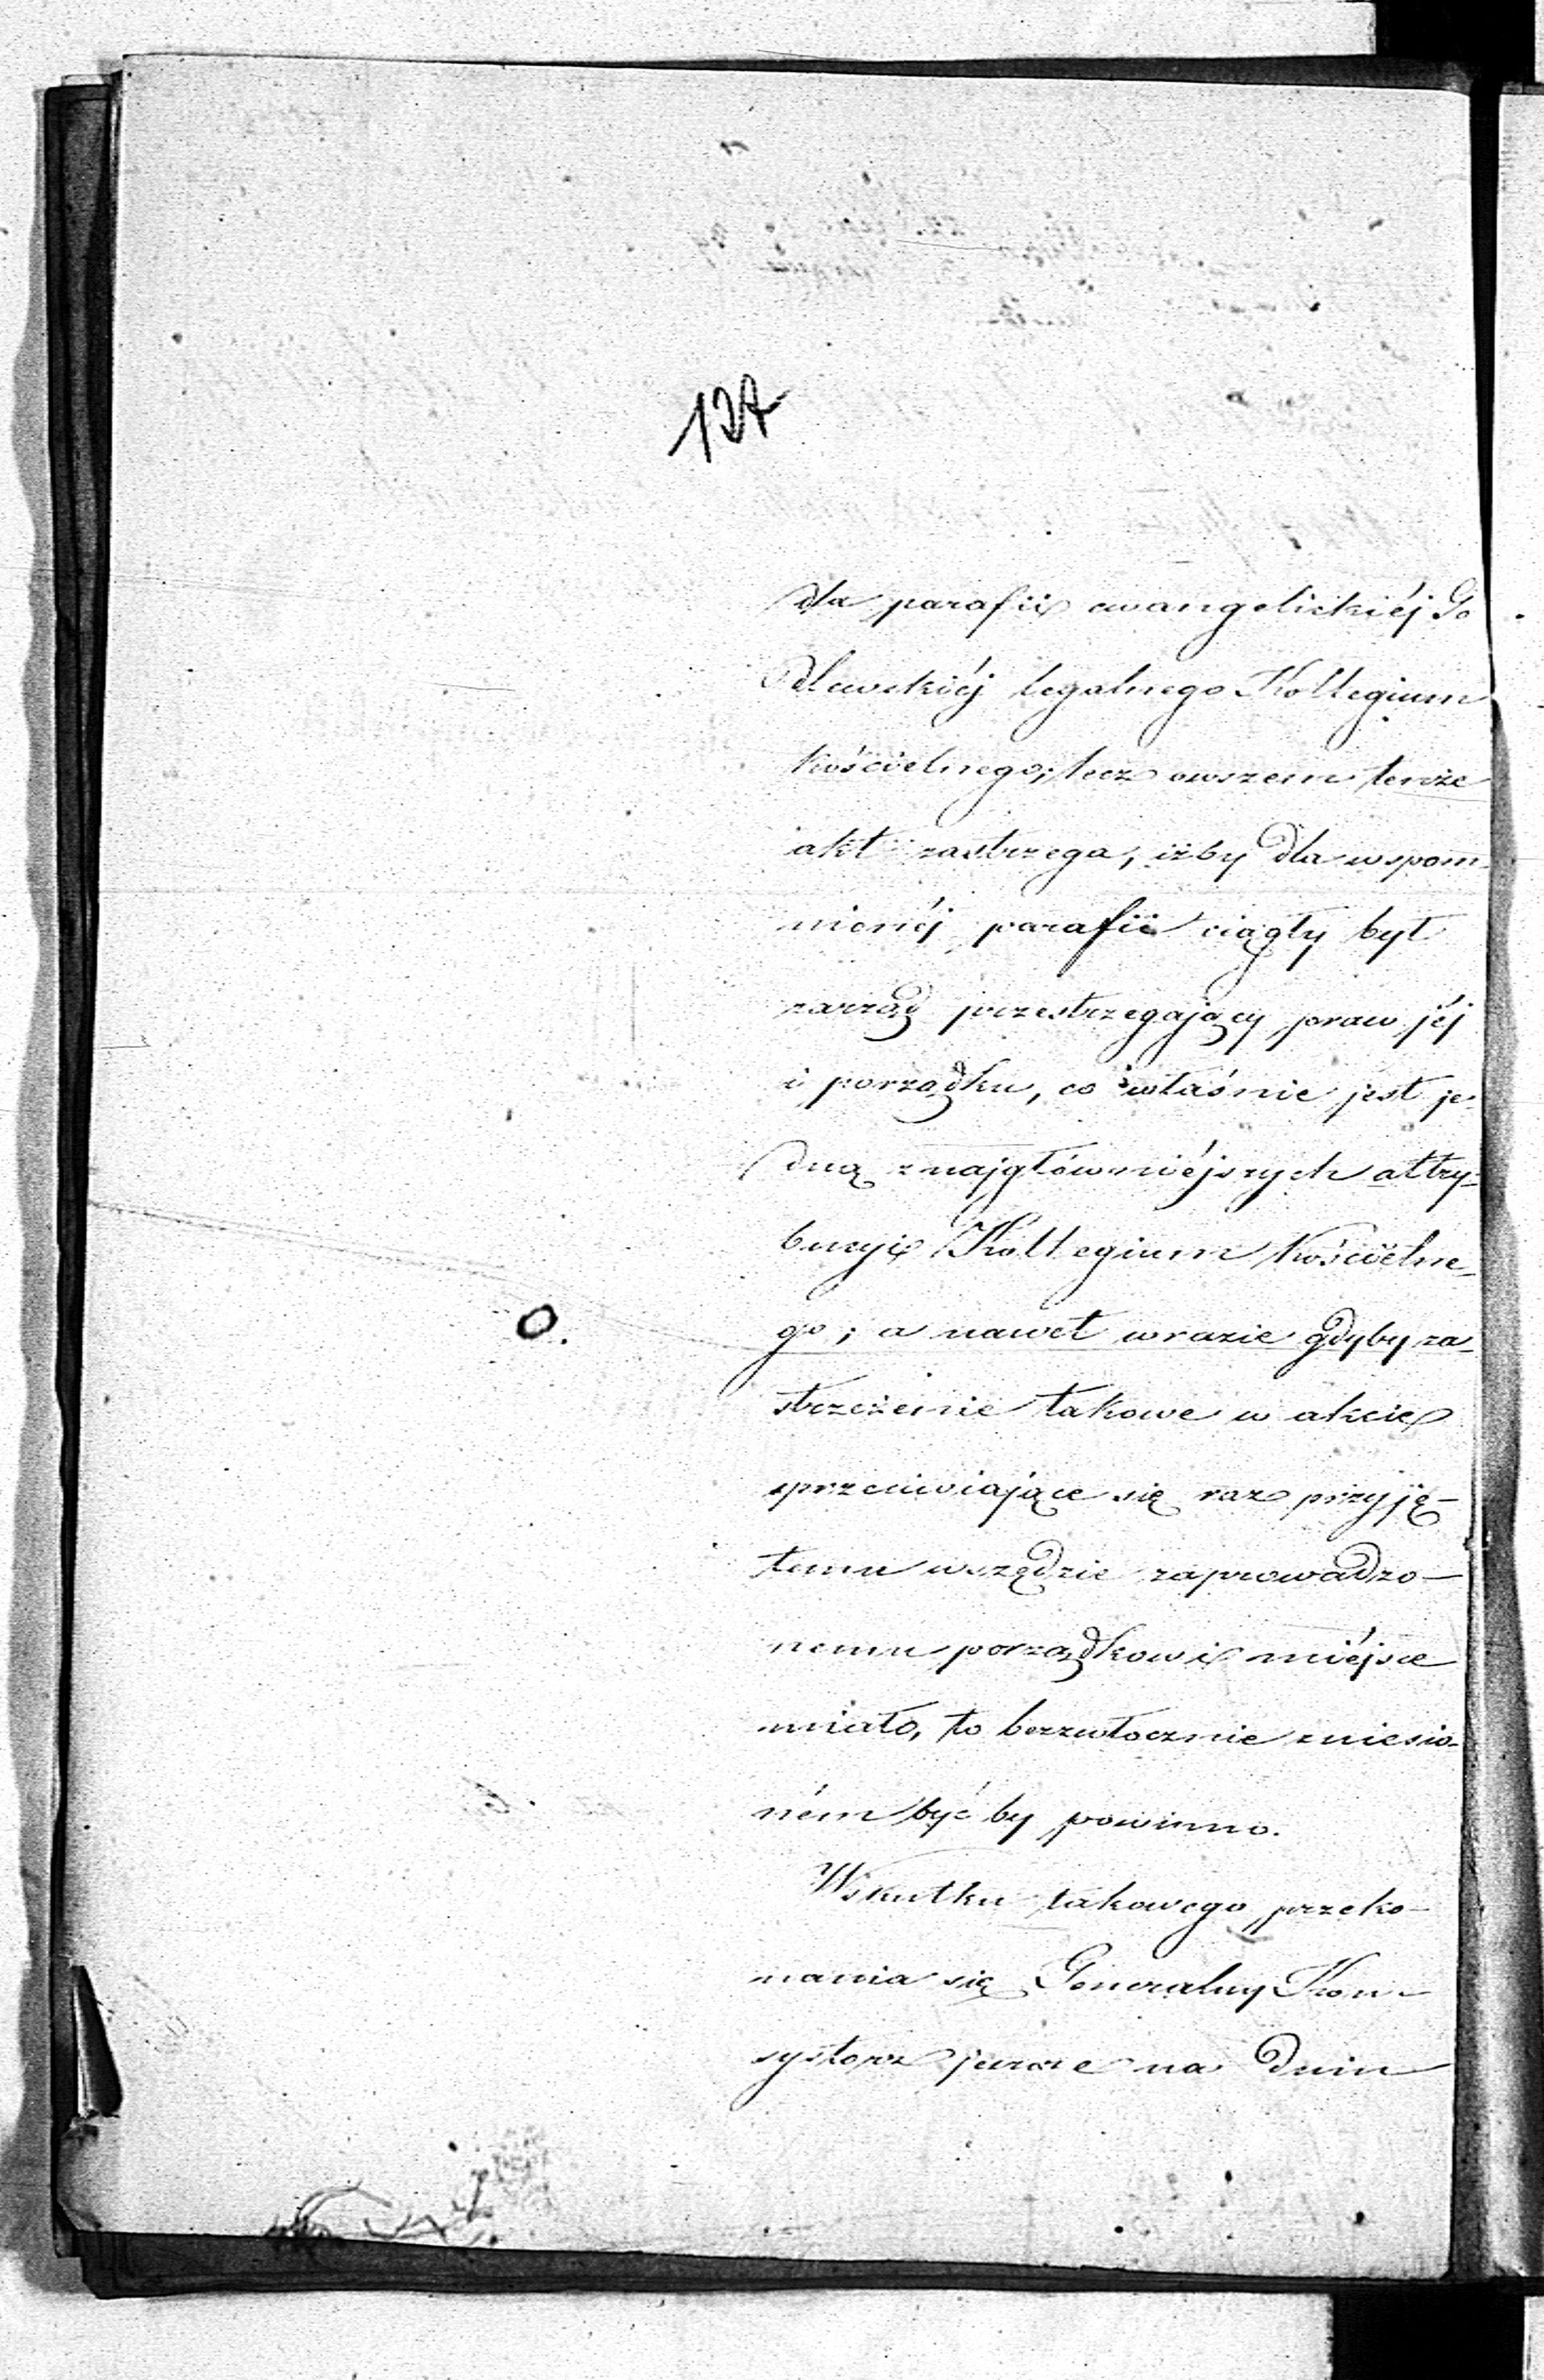 127
dla parafii ewangelickiéj Go
dlewskiéj legalnego Kollegium
kościelnego; lecz owszem tenże
akt zastrzega, iżby dla wspom-
nionéj parafii ciągły był
zarząd przestrzegający praw jéj
i porządku, co właśnie jest je-
dną z najgłówniéjszych attry-
bucyi Kollegium Kościelne-
go; a nawet w razie gdyby za-
strzeżenie takowe w akcie
sprzeciwiające się raz przyję-
temu wszędzie zaprowadzo-
nemu porządkowi miéjsce
miało, to bezzwłocznie zniesio-
ném być by powinno.
W skutku takowego przeko-
nania się Generalny Kon-
systorz jeszcze na dniu